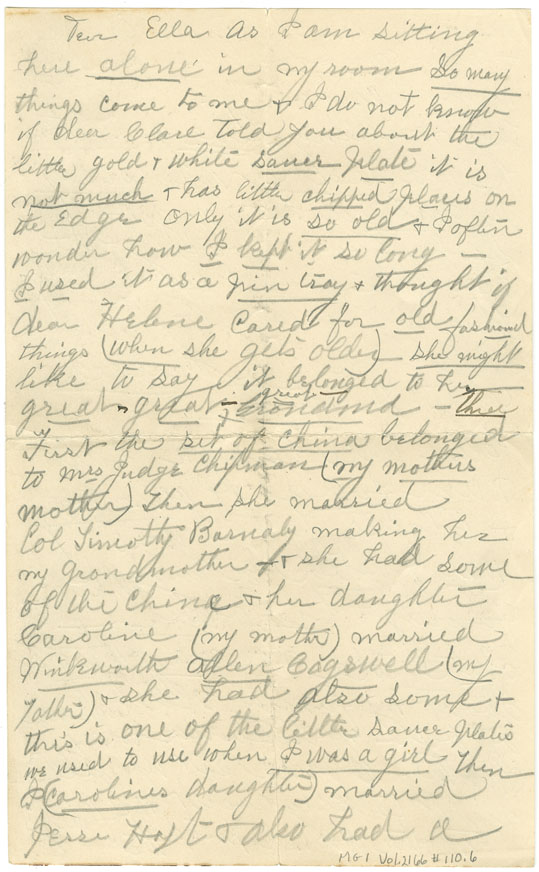 Dear Ella As I am sitting
here alone in my room So many
things come to me & I do not know
if dear Clare told you about the
little gold & white saucer plate it is
not much & has little chipped places on
the Edge Only it is so old & I often
wonder how I kept it so long —
I used it as a pin tray & thought if
dear Helene Cared for old fashioned
things (when she gets older) she might
like to say it belonged to her
great - great - great Grandmd - three
First the set of China belonged
to Mrs Judge Chipman (my mothers
mother) Then she married
Col Timothy Barnaby making her
my Grandmother & she had some
of the China & her daughter
Caroline (my mother) married
Winkworth Allen Cogswell (my
Father) & she had also some &
this is one of the little saucer plates
we used to use when I was a girl Then
I (Carolines daughter) married
Jesse Hoyt & also had a
MG1 Vol. 2166 # 110.6